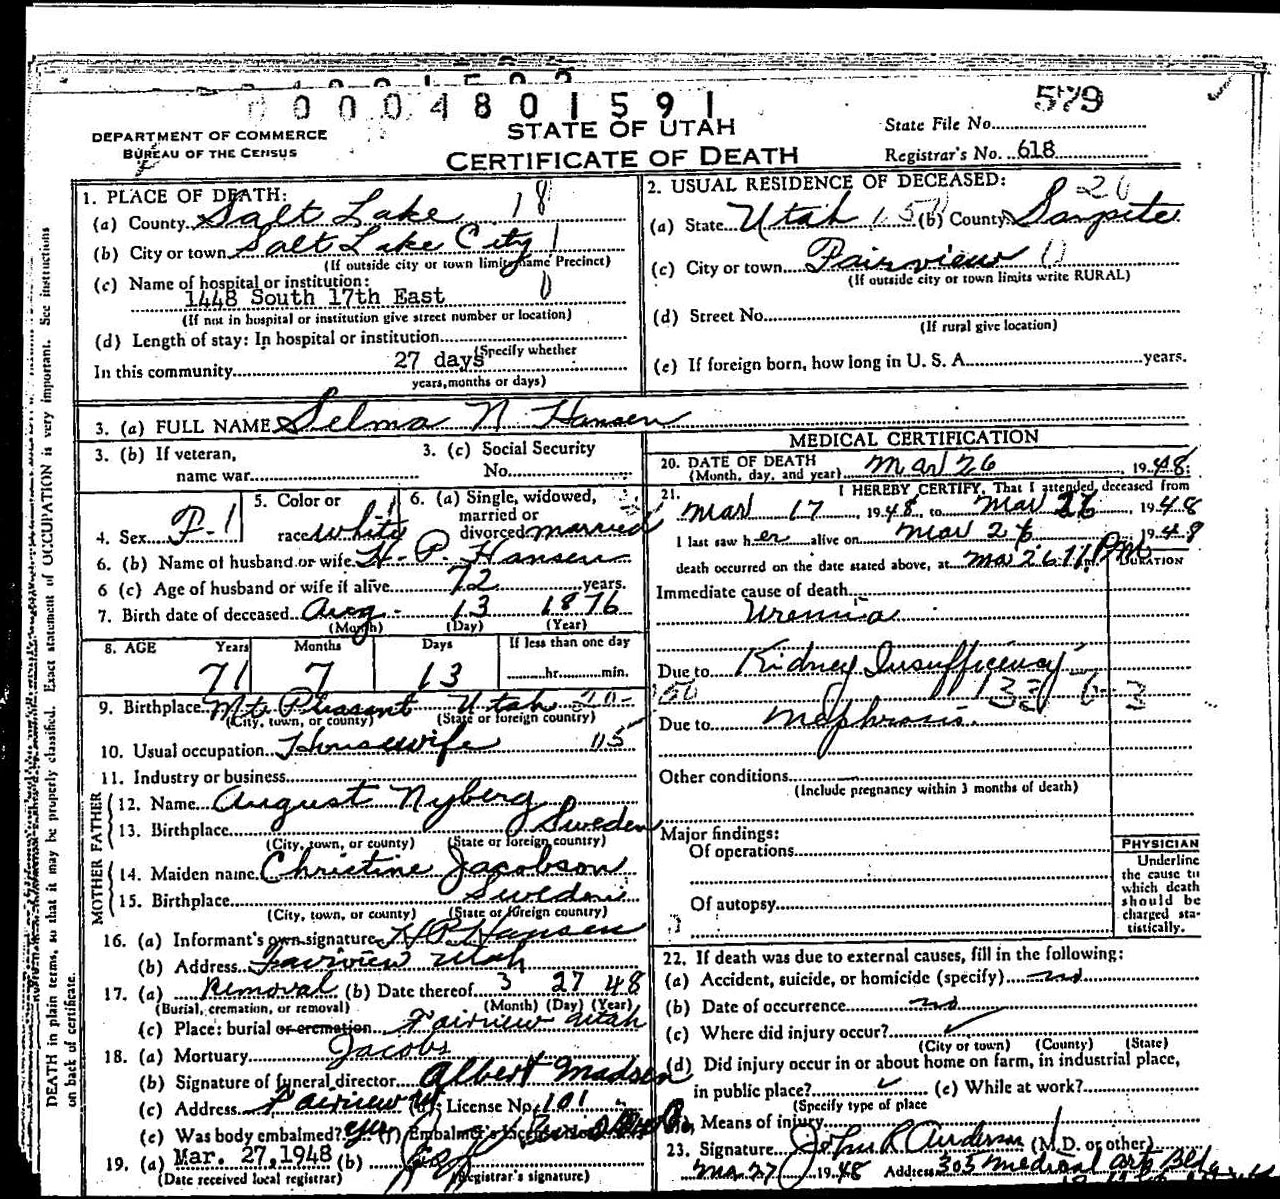 00004801591
579
DEPARTMENT OF COMMERCE
BUREAU OF THE CENSUS
STATE OF UTAH
CERTIFICATE OF DEATH
State File No.
Registrar's No. 618
1. PLACE OF DEATH:
(a) County Salt Lake 18
(b) City or town Salt Lake City 1
(If outside city or town limits name Precinct)
(c) Name of hospital or institution:
1448 South 17th East 0
(If not in hospital or institution give street number or location)
(d) Length of stay: In hospital or institution
(Specify whether
In this community 27 days
years, months or days)
2. USUAL RESIDENCE OF DECEASED:
(a) State Utah (b) County Sanpete
(c) City or town Fairview 0
(If outside city or town limits write RURAL)
(d) Street No.
(If rural give location)
(e) If foreign born, how long in U. S. A. years.
3. (a) FULL NAME Selma N Hansen
3. (b) If veteran,
name war
3. (c) Social Security
No.
4. Sex F-1
5. Color or
race White
6. (a) Single, widowed,
married or
divorced married
6. (b) Name of husband or wife H. P. Hansen
6 (c) Age of husband or wife if alive 72 years.
7. Birth date of deceased Aug - 13 1876
(Month) (Day) (Year)
8. AGE Years Months Days If less than one day
71 7 13 hr. min.
9. Birthplace Mt. Pleasant Utah 20-
(City, town, or county) (State or foreign country)
10. Usual occupation Housewife 05
11. Industry or business
FATHER
12. Name August Nyberg
13. Birthplace Sweden
(City, town, or county) (State or foreign country)
MOTHER
14. Maiden name Christine Jacobson
15. Birthplace Sweden
(City, town, or county) (State or foreign country)
16. (a) Informant's own signature H P Hansen
(b) Address Fairview Utah
17. (a) Removal (b) Date thereof 3 27 48
(Burial, cremation, or removal) (Month) (Day) (Year)
(c) Place: burial or cremation Fairview Utah
18. (a) Mortuary Jacobs
(b) Signature of funeral director Albert Madsen
(c) Address Fairview License No. 101
(e) Was body embalmed? yes (f) Embalmer's License
19. (a) Mar. 27, 1948 (b)
(Date received local registrar) (Registrar's signature)
MEDICAL CERTIFICATION
20. DATE OF DEATH
(Month, day, and year) Mar 26, 1948.
21. I HEREBY CERTIFY, That I attended deceased from
Mar 17, 1948, to Mar 26, 1948
I last saw her alive on Mar 26 1948
death occurred on the date stated above, at Mar 26 11 PM
DURATION
Immediate cause of death
Uremia
Due to Kidney Insufficiency
Due to Nephrosis.
Other conditions
(Include pregnancy within 3 months of death)
Major findings:
Of operations
Of autopsy
PHYSICIAN
Underline
the cause to
which death
should be
charged sta-
tistically.
22. If death was due to external causes, fill in the following:
(a) Accident, suicide, or homicide (specify) no
(b) Date of occurrence no
(c) Where did injury occur?
(City or town) (County) (State)
(d) Did injury occur in or about home on farm, in industrial place,
in public place? (e) While at work?
(Specify type of place
Means of injury
23. Signature John R Anderson (M.D. or other)
Mar 27 1948 Address 305 Medical Arts Bldg
DEATH in plain terms, so that it may be properly classified. Exact statement of OCCUPATION is very important. See instructions
on back of certificate.